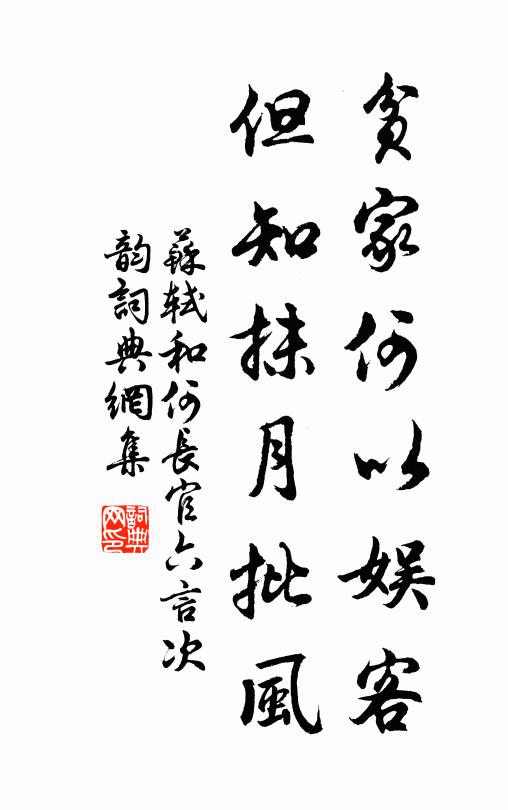 貧家何以娛客
但知抹月批風
蘇軾和何長官六言次
韵詞典網集
詞典网印